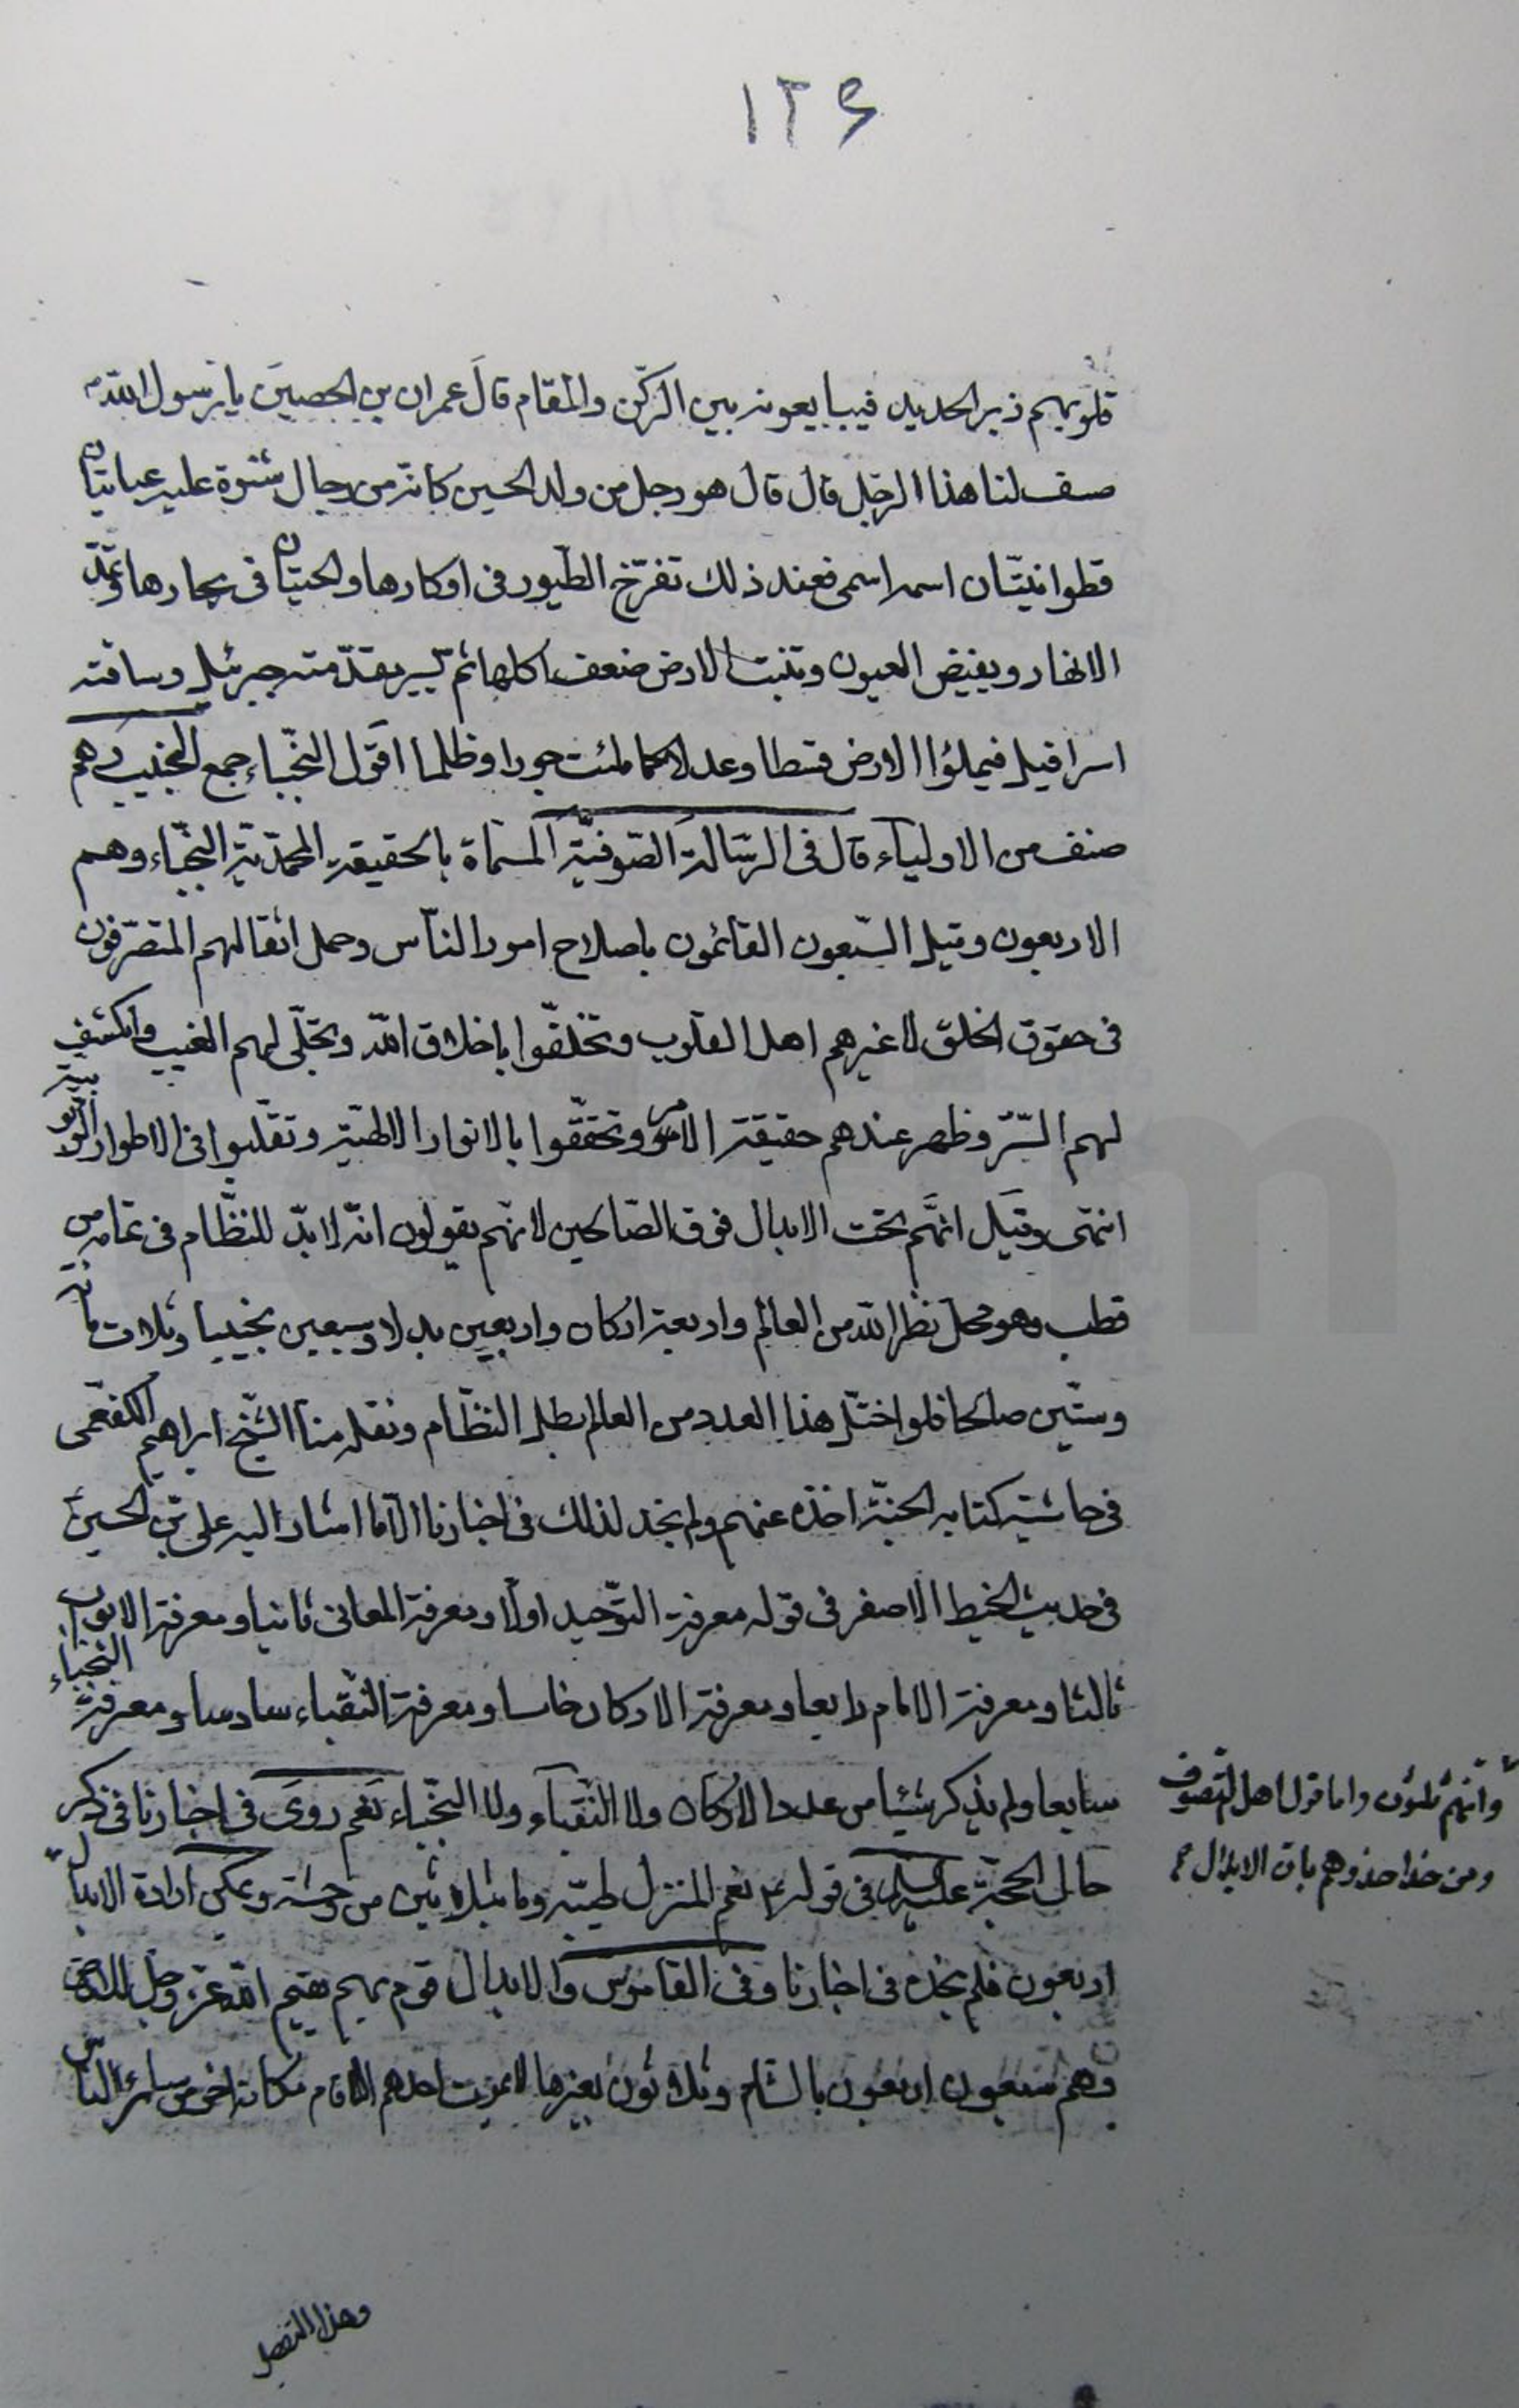 ١٢۶
قلوبهم زبر الحديد فيبايعونه بين الركن والمقام قال عمران بن الحصين يا رسول الله
صف لنا هذا الرجل قال قال هو رجل من ولد الحسين كانه من رجال شنوة عليه عبايتان
قطوانيتان اسمه اسمي فعند ذلك تفرخ الطيور في اوكارها والحيتان في بحارها وتمد
الانهار ويفيض العيون وتنبت الارض ضعف اكلها ثم يسير يقدّمته جبرئيل وساقته
اسرافيل فيملؤا الارض قسطا وعدلا كما ملئت جورا وظلما اقول النجّباء جمع النجيب وهم
صنف من الاولياء قال في الرسالة الصوفيّة المسماة بالحقيقة المحمّديّة النجباء وهم
الاربعون وقيل السّبعون القائمون باصلاح امور الناس وحمل اثقالهم المتصرّفون
في حقوق الخلق لا غيرهم اهل القلوب وتخلّقوا باخلاق الله وتجلّى لهم الغيب وانكشف
لهم السّرّ وظهر عندهم حقيقة الامر وتحققّوا بالانوار الالهيّة وتقلبوا في الاطوار الربوبية
انتهى وقيل انّهم تحت الابدال فوق الصّالحين لانهم يقولون انّه لا بدّ للنظّام في تمامه من
قطب وهو محل نظر الله من العالم واربعة اركان واربعين بدلا وسبعين نجيبا وثلاث مائة
وستّين صالحا فلو اختلّ هذا العدد من العالم بطل النظّام ونقله منا الشيخ ابراهيم الكفعمى
في حاشية كتابه الجنّة اخذه عنهم ولم نجد لذلك في اخبارنا الّا ما اشار اليه على بن الحسين
في حديث الخيط الاصفر في قوله معرفة التوّحيد اولّا ومعرفة المعانى ثانيا ومعرفة الابواب
ثالثا ومعرفة الامام رابعا ومعرفة الاركان خامسا ومعرفة النّقباء سادسا ومعرفة النجباء
سابعا ولم يذكر شيئا من عدد الاركان ولا النقباء ولا النجّباء نعم روى في اخبارنا في ذكر
حال الحجّة عليه السلام في قوله ع نعم المنزل طيبة وما بثلاثين من وحشة ويمكن ارادة الابدال
وأنّهم ثلثون واما قول اهل التصوف
ومن حذا حذوهم بان الابدال
اربعون فلم نجده في اخبارنا وفى القاموس والابدال قوم بهم يقيم الله عز وجل الارض
وهم سبعون اربعون بالشام وثلاثون بغيرها لا يموت احدهم الا قام مكانه اخر من ساير الناس
وهذا التفصيل